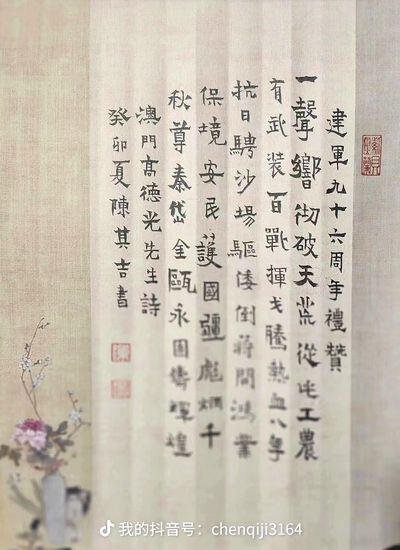 建軍九十六周年禮贊
一聲響彻破天荒從此工農
有武裝百戰揮戈騰熱血八年
抗日騁沙場驅倭倒蔣開鴻業
保境安民護國疆彪炳千
秋尊泰岱金甌永固鑄輝煌
澳門高德光先生詩
癸卯夏陳其吉書
我的抖音号：chenqiji3164